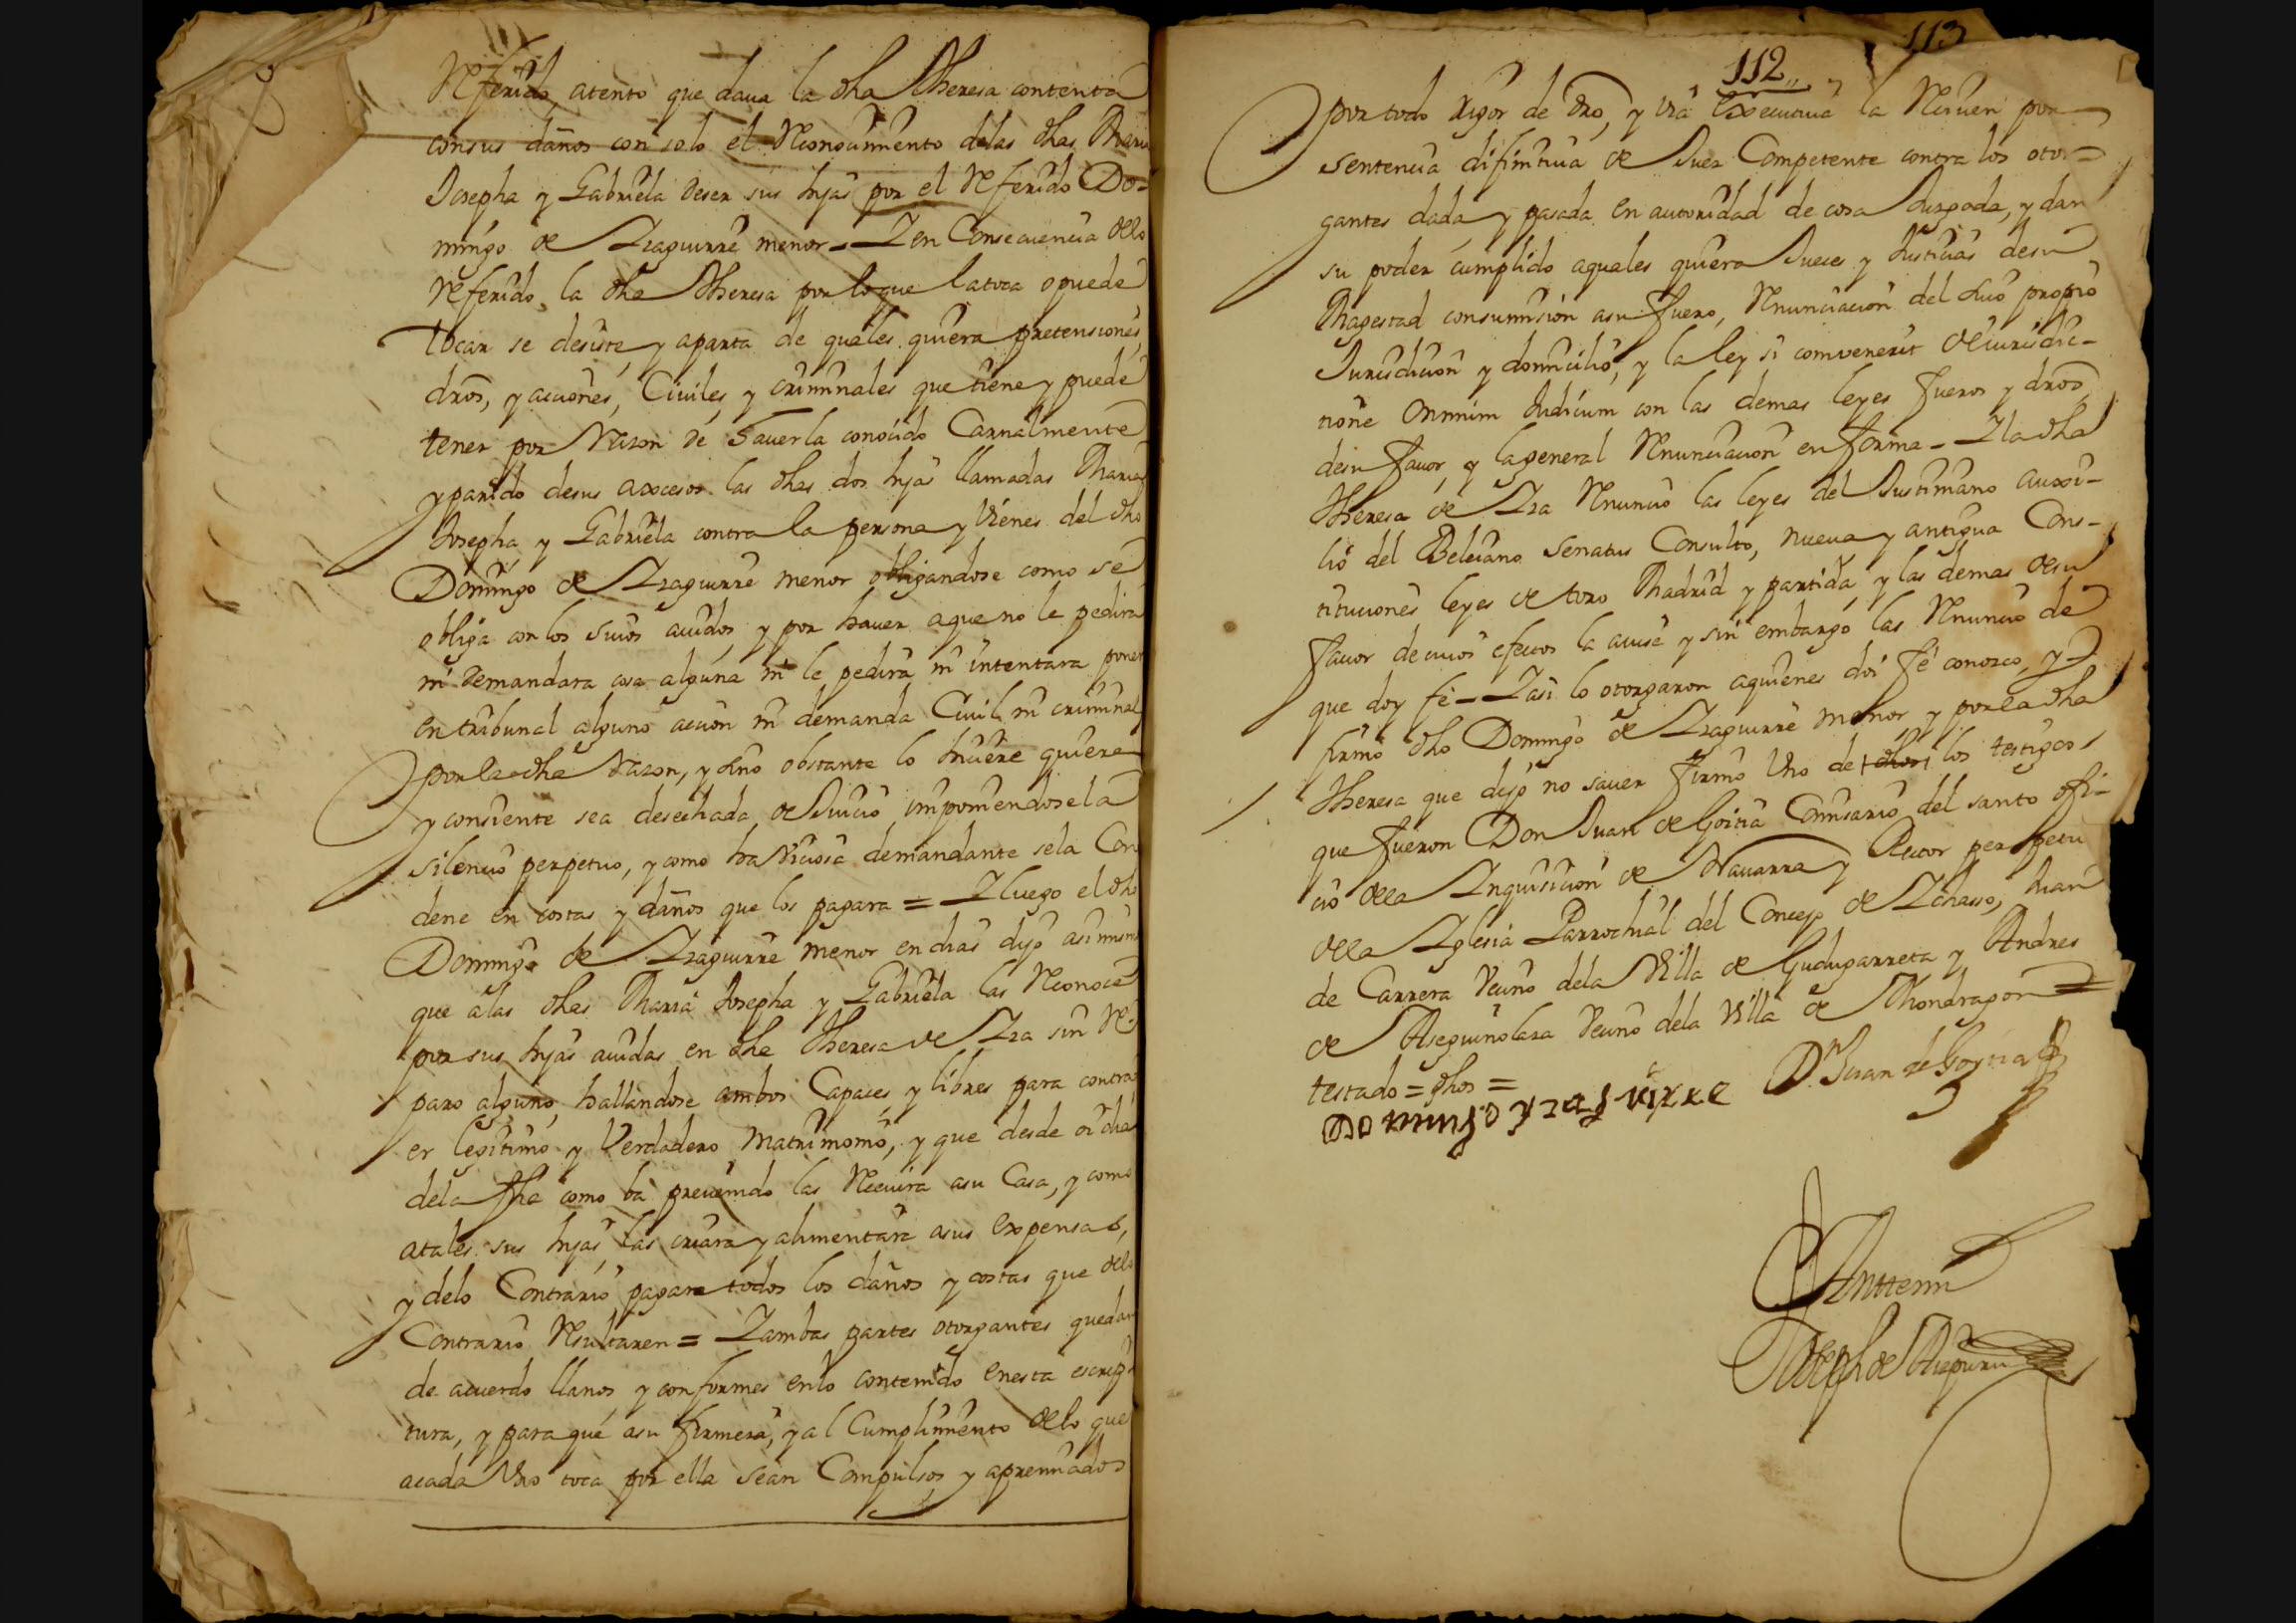 Referido, atento que daua la dha Theresa contenta
consus daños con solo el Reconocimiento delas dhas Maria
Josepha y Gabriela deser sus hijas por el Referido Do-
mingo de Yzaguirre menor - Y en Consecuencia dello
Referido, la dha Theresa por loque latoca o puede
tocar se desiste y aparta de quales quiera pretensiones,
dros, y acciones, Ciuiles y criminales que tiene y puede
tener por Razon de hauerla conocido Carnalmente
y parido desus accesos las dhas dos hijas llamadas Maria
Josepha, y Gabriela contra la persona y Vienes del dho
Domingo de Yzaguirre menor obligandose como se
obliga con los suios auidos, y por hauer aque no le pedira
ni demandara cosa alguna ni le pedira ni intentara poner
en tribunal alguno accion ni demanda Ciuil ni criminal
por la dha Razon, y sino obstante lo hiciere quiere
y consiente sea desechada, de Juicio imponiendosela
silencio perpetuo, y como ha Viciosa demandante sela Con
dene en costas y daños que los pagara = Y luego el dho
Domingo de Yzaguirre menor en dias dijo asimismo
que alas dhas Maria Josepha y Gabriela las Reconoce
por sus hijas auidas en dha Theresa de Yza sin Re-
paro alguno, hallandose ambos Capaces y libres para contra
er legitimo y Verdadero Matrimonio, y que desde oi dia
dela fha como ba preuenido las Receuira asu Casa, y como
atales sus hijas las criara y alimentara asus expensas,
y delo Contrario pagara todos los daños y costas que delo
Contrario Resultaren = Y ambas partes otorgantes quedan
de acuerdo llanos, y conformes enlo contenido enesta escrip
tura, y para que asu firmeza, y al Cumplimiento delo que
acada Uno toca por ella sean Compulsos y apremiados
113
112
por todo Rigor de dro, y Via executiua la Reciuen por
sentencia difinitiua de Juez Competente contra los otor-
gantes dada y pasada en autoridad de cosa Juzgada, y dan
su poder cumplido aquales quiera Jueces y Justicias desu
Magestad consumision asu fuero, Renunciacion del suio propio
Jurisdicion y domicilio, y la ley si comvenerit de iurisdic-
tione Omnium Judicum con las demas leyes fueros y dros
desu fauor, y lageneral Renunciacion en forma - Y la dha
Theresa de Yza Renuncio las leyes del Justiniano auxi-
lio del Beleiano Senatus Consulto, nueua y antigua Cons-
tituciones leyes de toro Madrid y partida, y las demas desu
fauor de cuios efectos la auise y sin embargo las Renuncio de
que doy fe - Y asi lo otorgaron aquienes doi fe conozco, y
firmo dho Domingo de Yzaguirre menor, y por la dha
Theresa que dijo no sauer firmo Uno de dhos los testigos
que fueron Don Juan de Goitia Comisario del santo ofi-
cio dela Inquisicion de Nauarra y Rector perpetu
dela Yglesia Parrochial del Concejo de Ychasso, Juan
de Carrera Vecino dela Villa de Gudugarreta y Andres
de Aseguinolaza Vecino dela Villa de Mondragon =
testado = dhos =
Domingo de Yzaguirre
D. Juan de Goytia
Anttemi
Joseph de Aiepuru